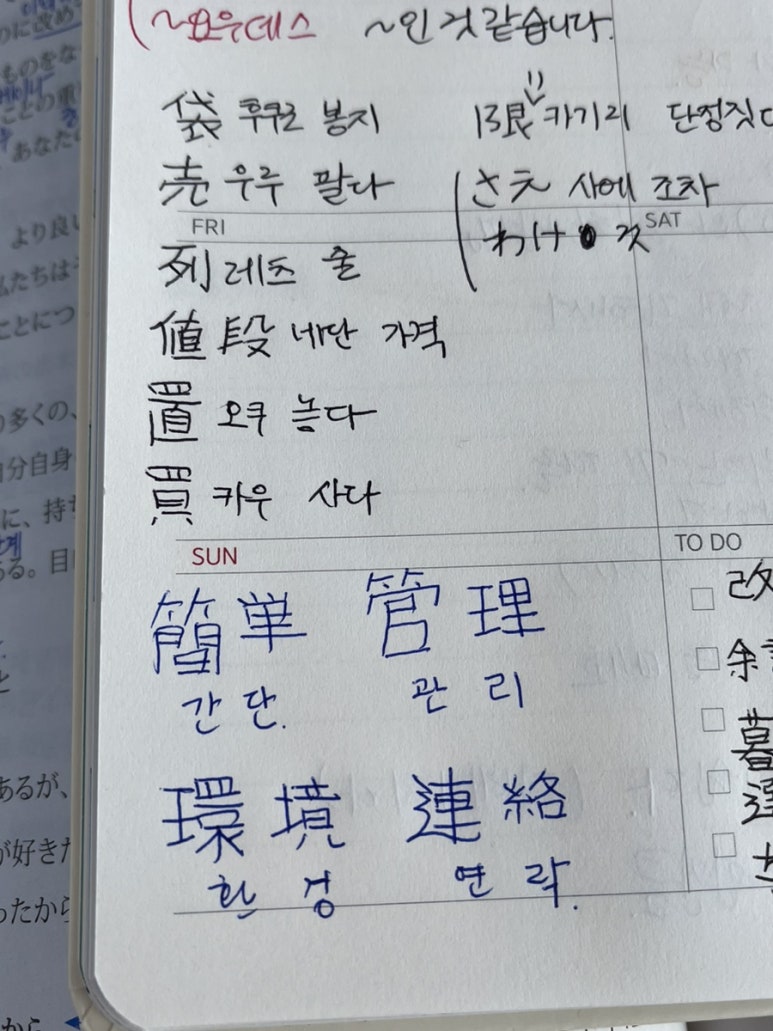 ~요우데스 ~인 것 같습니다.
袋 후쿠로 봉지 限 카기리 단정짓다
売 우루 팔다 さえ 사에 조차
FRI SAT
わけ 것
列 레츠 줄
値段 네단 가격
置 오쿠 놓다
買 카우 사다
SUN TO DO
簡単 管理 改
간단. 관리 余
環境 連絡 暮
환경 연락.
のに改め
ものをな
ことの重
あなた
より良い
私たちは
ことにつ
多くの、
自分自身
に、持
る。目
あるが、
が好きだ
ったから
から